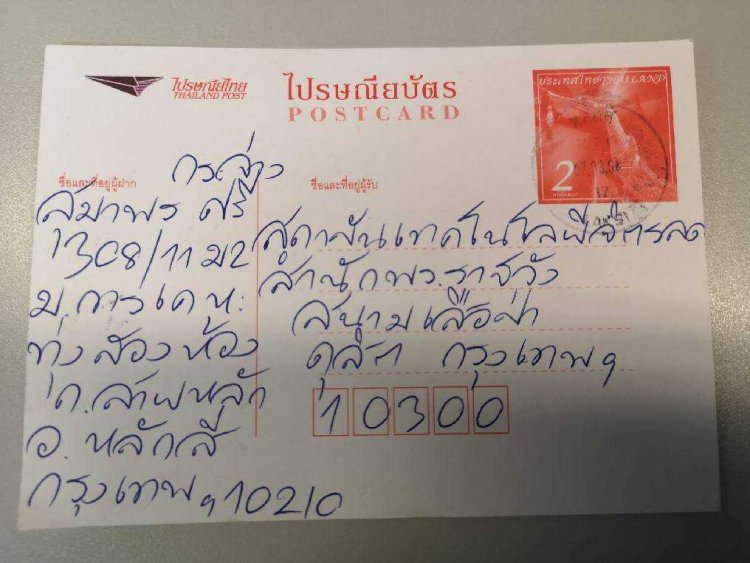 ไปรษณีย์ไทย
THAILAND POST
ไปรษณียบัตร
POSTCARD
ประเทศไทย THAILAND
2
ชื่อและที่อยู่ผู้ฝาก
กรส่าง
สมาพร ศรี
1308/11 ม2
ม.การเคหะ
ทุ่งสองห้อง
ถ.สายหลัก
อ.หลักสี่
กรุงเทพฯ 10210
ชื่อและที่อยู่ผู้รับ
สถาบันเทคโนโลยีจิตรลดา
สำนักพระราชวัง
สนามเสือป่า
ดุสิต กรุงเทพฯ
10300